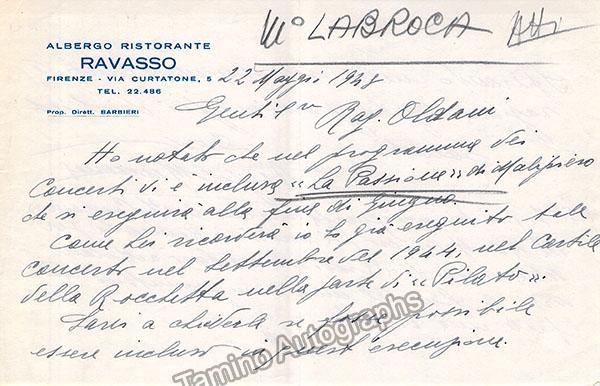 Mº LABROCA Atti
ALBERGO RISTORANTE
RAVASSO
FIRENZE - VIA CURTATONE, 5
TEL. 22.486
Prop. Dirett. BARBIERI
22 Maggio 1948
Rag. Oldani
Ho notato che nel programma dei
concerti vi è inclusa "La Passione" di Malipiero
che si eseguirà alla fine di Giugno.
Come Lei ricorderà io ho già eseguito tale
concerto nel Settembre del 1944, nel Cortile
della Rocchetta nella parte di "Pilato".
Sarei a chiederLe se fosse possibile
essere incluso in esecuzione.
Tamino Autographs